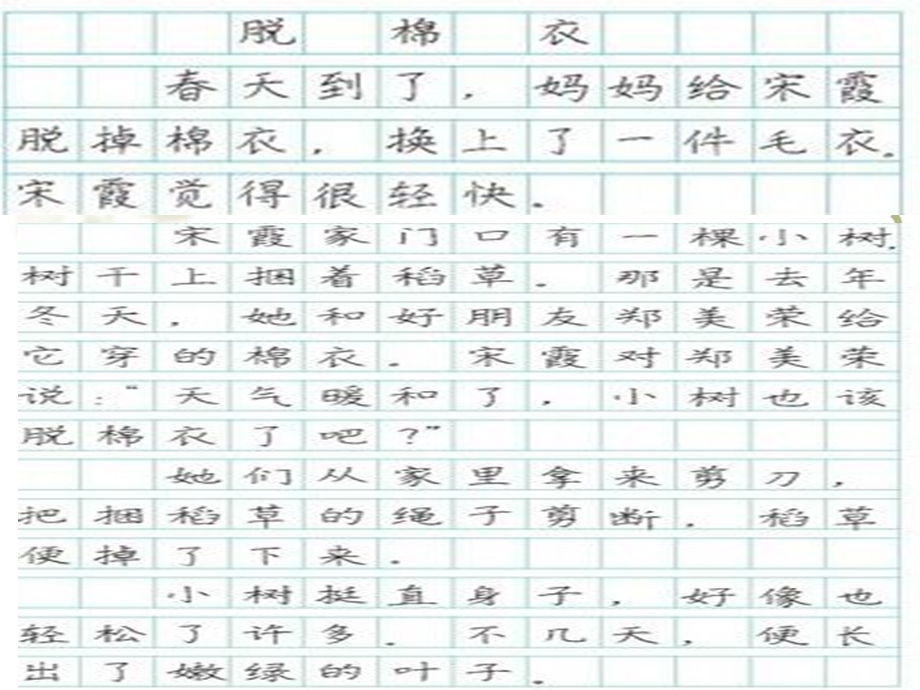 脱棉衣
春天到了，妈妈给宋霞
脱掉棉衣，换上了一件毛衣。
宋霞觉得很轻快。
宋霞家门口有一棵小树。
树干上捆着稻草。那是去年
冬天，她和好朋友郑美荣给
它穿的棉衣。宋霞对郑美荣
说：“天气暖和了，小树也该
脱棉衣了吧？”
她们从家里拿来剪刀，
把捆稻草的绳子剪断，稻草
便掉了下来。
小树挺直身子，好像也
轻松了许多。不几天，便长
出了嫩绿的叶子。